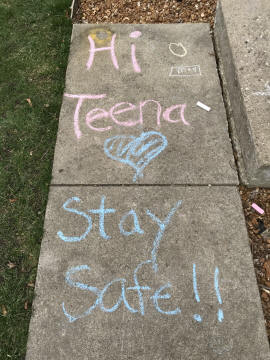 Hi
Teena
Stay
Safe!!